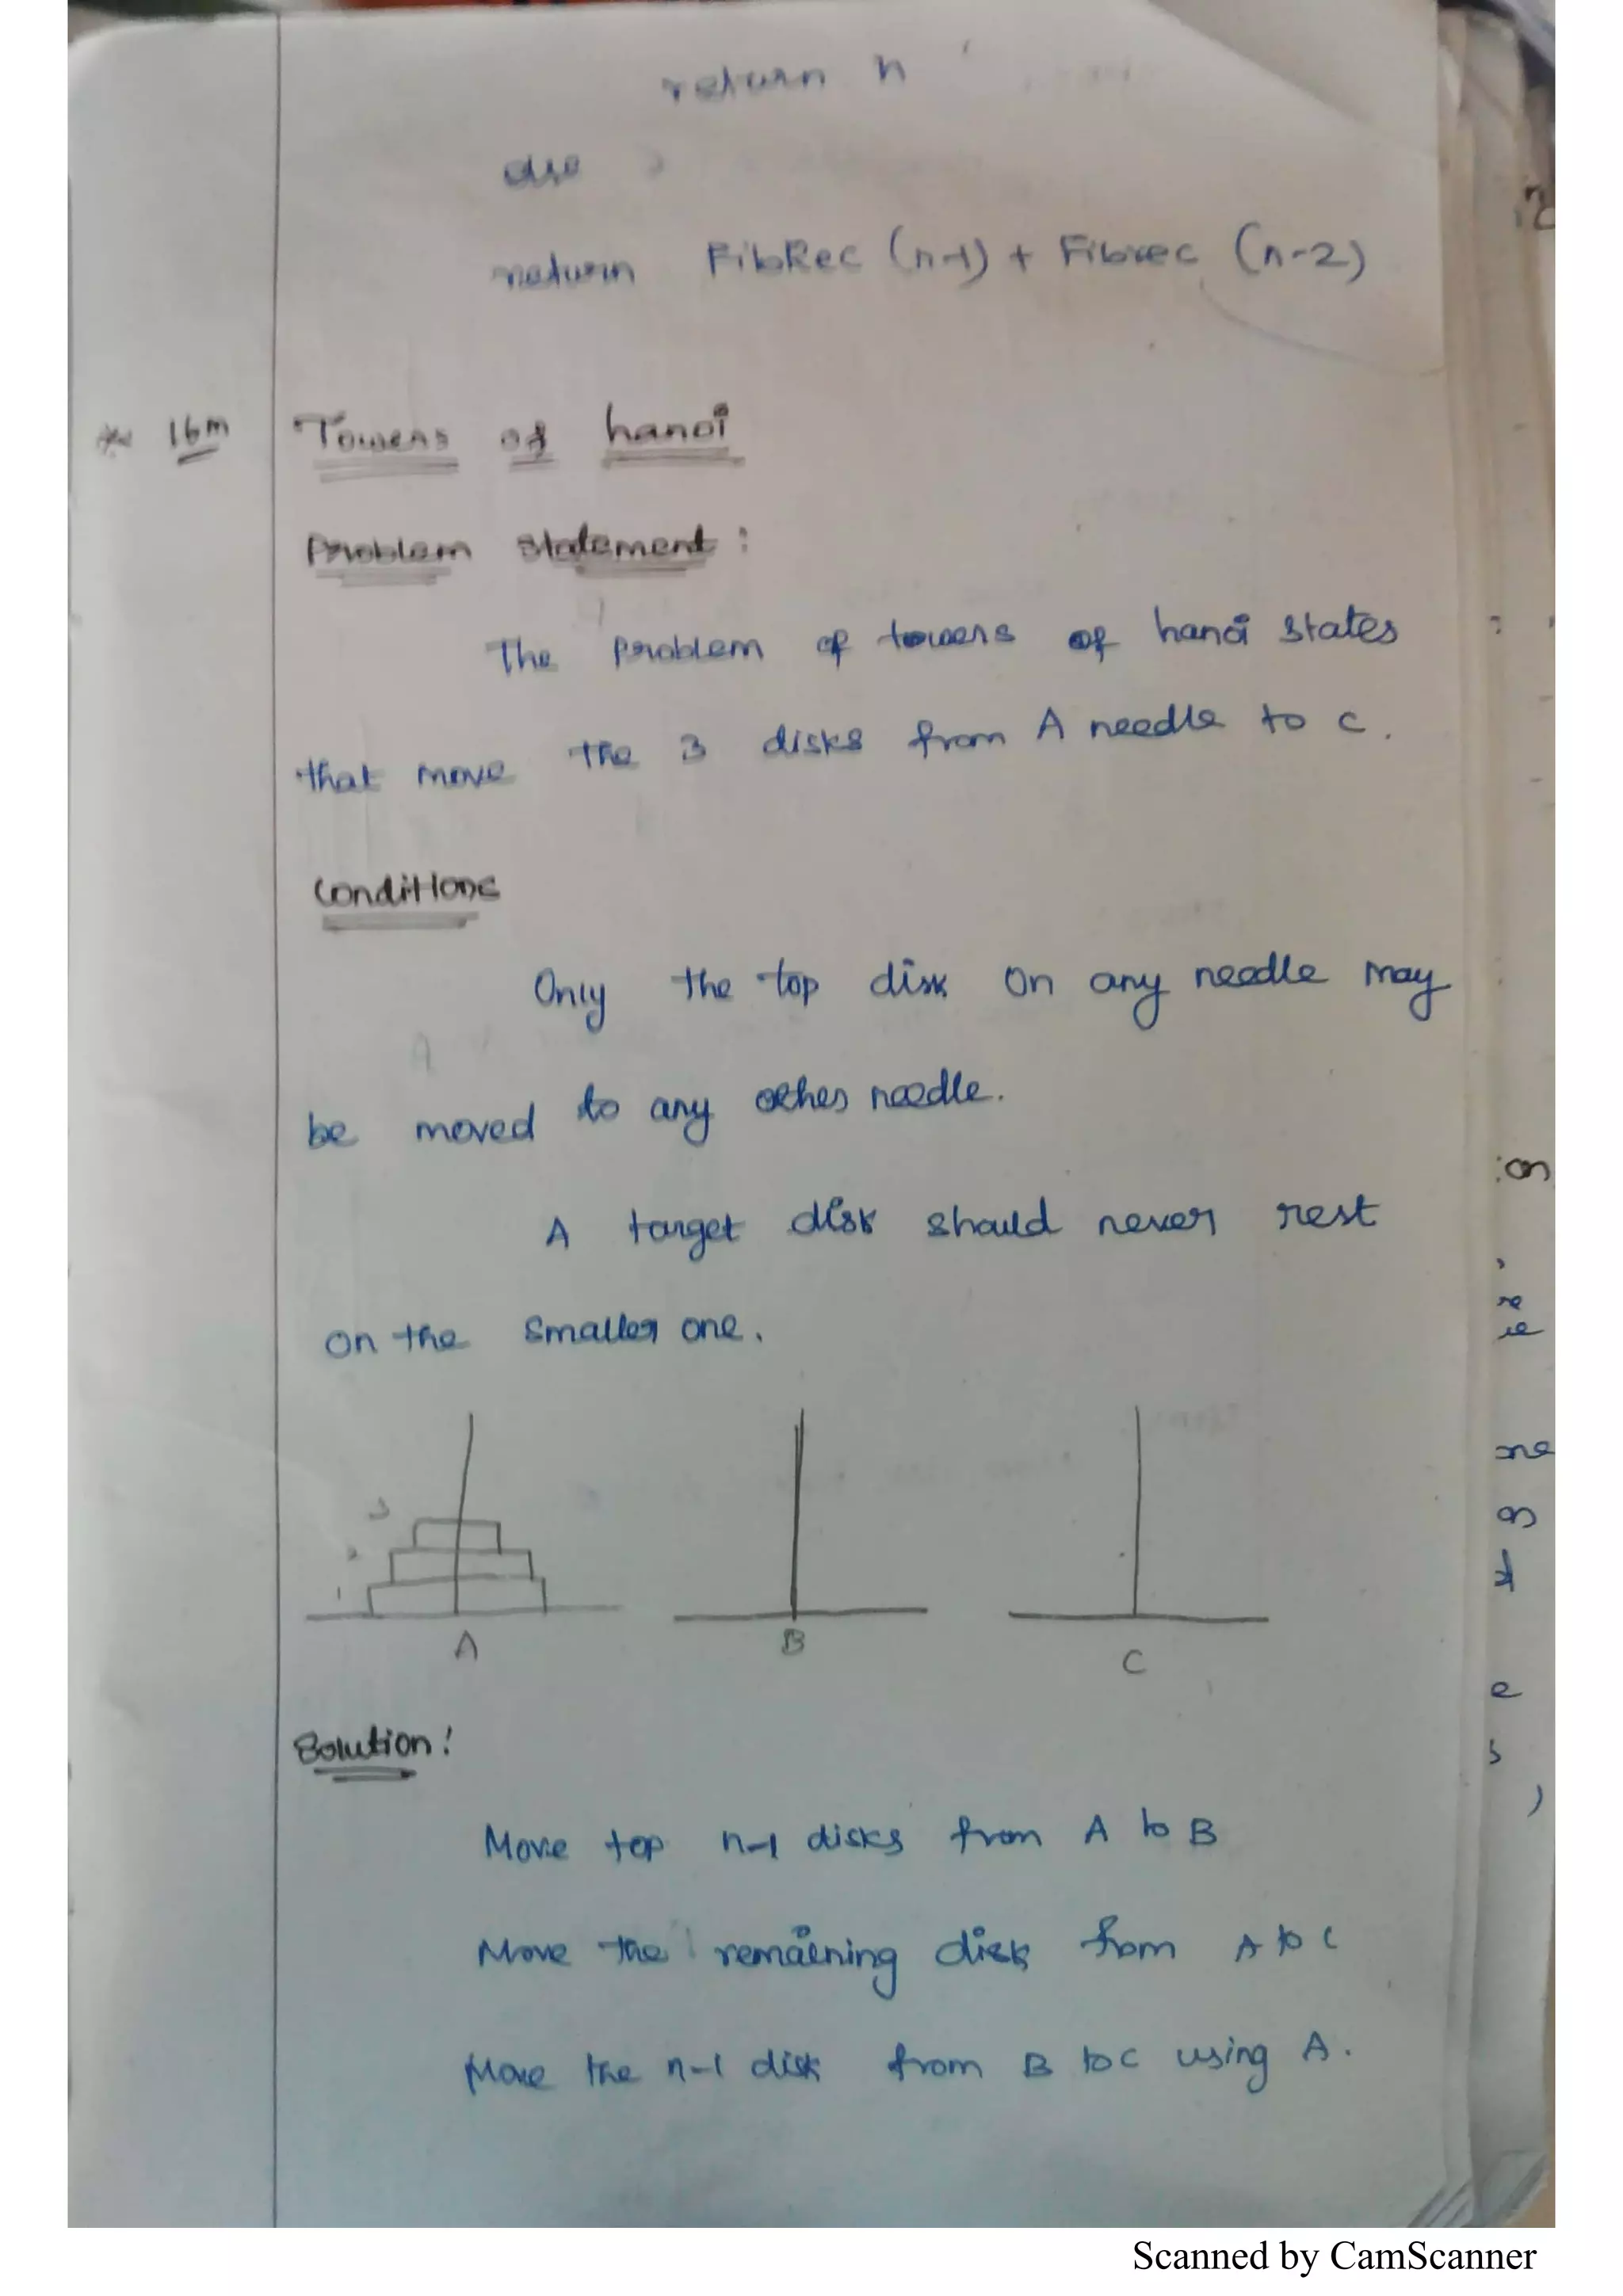 return n
else
return FibRec (n-1) + Fibrec (n-2)
* 16m Towers of hanoi
Problem statement :
The problem of towers of hanoi states
that move the 3 disks from A needle to C.
Conditions
Only the top disk on any needle may
be moved to any other needle.
A target disk should never rest
on the smaller one.
3
2
1
A B C
Solution:
Move top n-1 disks from A to B
Move the remaining disk from A to C
Move the n-1 disk from B to C using A.
Scanned by CamScanner